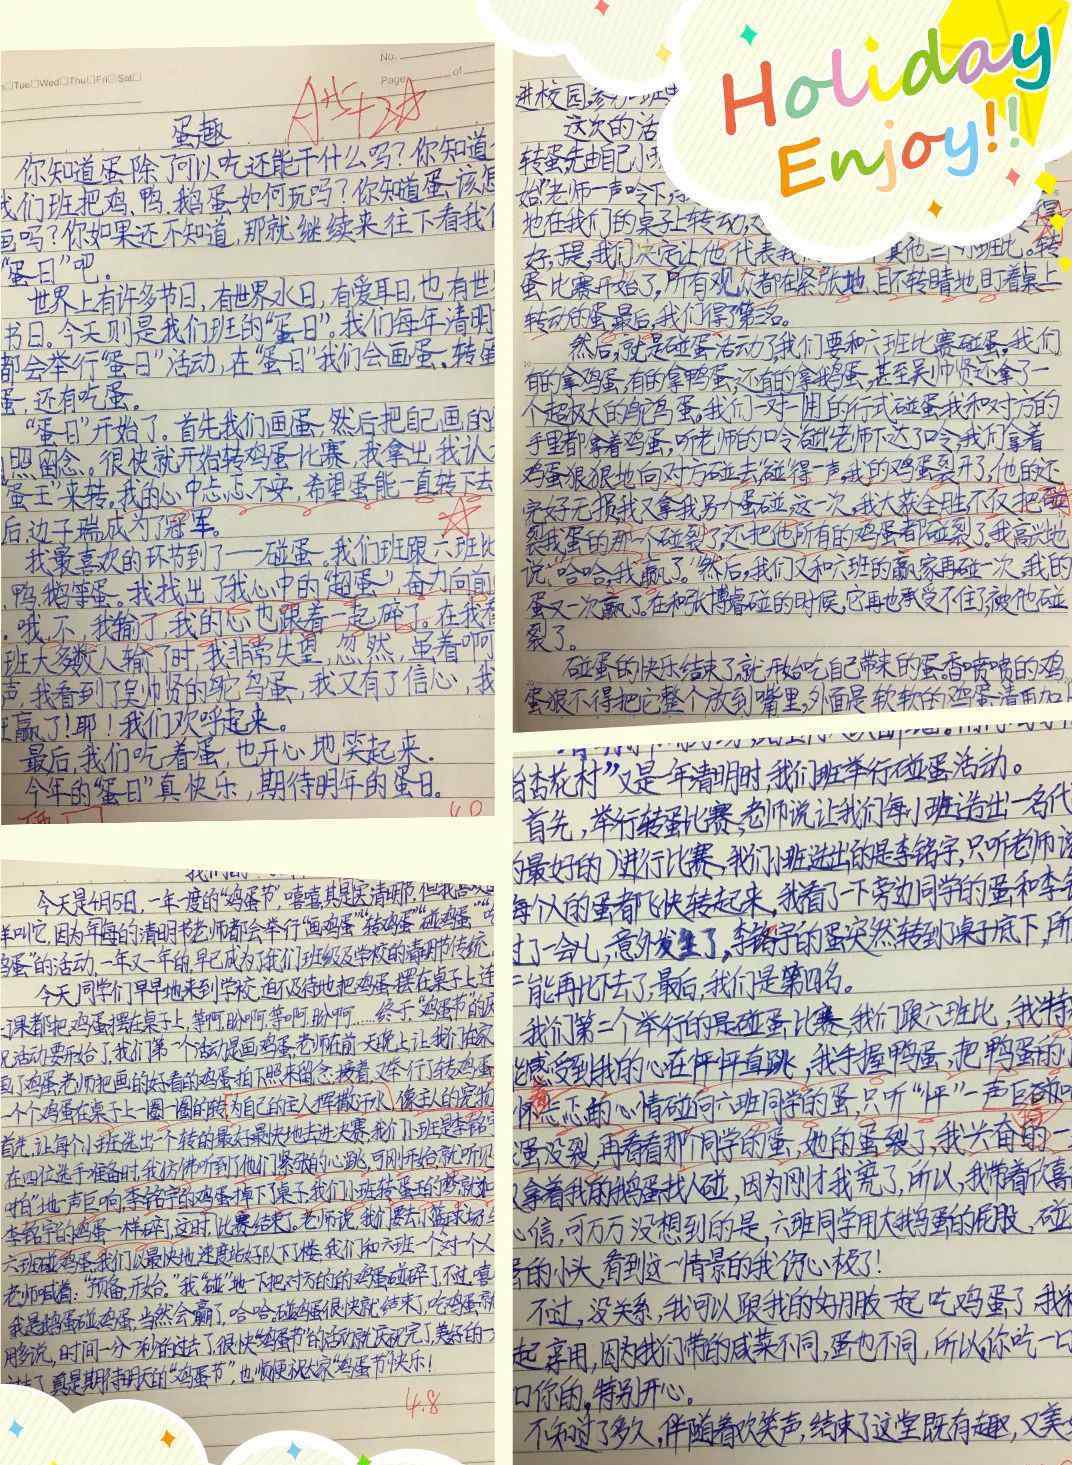 Holiday
Enjoy!!
No.
Tue□Wed□Thu□Fri□Sat□
Page of
A+5+2☆
蛋趣
你知道蛋除了可以吃还能干什么吗？你知道
我们班把鸡、鸭、鹅蛋如何玩吗？你知道蛋该怎
画吗？你如果还不知道，那就继续来往下看我们
“蛋日”吧。
世界上有许多节日，有世界水日，有爱耳日，也有世
书日。今天则是我们班的“蛋日”。我们每年清明
都会举行“蛋日”活动，在“蛋日”我们会画蛋、转蛋
蛋，还有吃蛋。
“蛋日”开始了。首先我们画蛋，然后把自己画的
照留念。很快就开始转鸡蛋比赛，我拿出我认
蛋王”来转。我的心中忐忑不安，希望蛋能一直转下去
后边子瑞成为了冠军。
我最喜欢的环节到了——碰蛋。我们班跟六班比
鸭、鹅等蛋。我找出了我心中的“超蛋”，奋力向前
哦，不，我输了，我的心也跟着一起碎了。在我看
班大多数人输了时，我非常失望，忽然，虽着啊
我看到了吴帅贤的鸵鸟蛋，我又有了信心，我
赢了！耶！我们欢呼起来。
最后，我们吃着蛋，也开心地笑起来。
今年的“蛋日”真快乐，期待明年的蛋日。
4.0
进校园，参加
这次的活
转蛋先由自己小
始”老师一声令下，
地在我们的桌子上转动，
好，于是，我们决定让他代表我们 其他三个小班比。转
蛋比赛开始了，所有观众都在紧张地、目不转睛地盯着桌上
转动的蛋，最后，我们得了第三名。
然后，就是碰蛋活动了，我们要和六班比赛碰蛋。我们
有的拿鸡蛋，有的拿鸭蛋，还有的拿鹅蛋，甚至吴帅贤还拿了一
个超极大的鸵鸟蛋。我们一对一用的行式碰蛋，我和对方的
手里都拿着鸡蛋，听老师的口令，碰！老师下达了口令，我们拿着
鸡蛋狠狠地向对方碰去，碰得一声，我的鸡蛋裂开了，他的还
完好无损，我又拿我另个蛋碰，这一次，我大获全胜，不仅把碰
裂我蛋的那一个碰裂了，还把他所有的鸡蛋都碰裂了。我高兴地
说：“哈哈，我赢了。”然后，我们又和六班的赢家再碰一次，我的
蛋又一次赢了，在和张博睿碰的时候，它再也承受不住了，被他碰
裂了。
碰蛋的快乐结束了，就开始吃自己带来的蛋，香喷喷的鸡
蛋狠不得把它整个放到嘴里，外面是软软的鸡蛋清再加
今天是4月5日，一年一度的“鸡蛋节”，嘻嘻，其实是清明节，但我喜欢
样叫它，因为每年的清明节老师都会举行“画鸡蛋”“转鸡蛋”“碰鸡蛋”“吃
鸡蛋”的活动，一年又一年的，早已成为了我们班级及学校的清明节传统
今天，同学们早早地来到学校，迫不及待地把鸡蛋摆在桌子上，连
课都把鸡蛋摆在桌子上，等啊，盼啊，等啊，盼啊……终于，“鸡蛋节”的庆
祝活动要开始了，我们第一个活动是画鸡蛋，老师在前一天晚上让我们在家
画了鸡蛋，老师把画的好看的鸡蛋拍下照来留念，接着，又举行了转鸡蛋
一个个鸡蛋在桌子上一圈一圈的转，为自己的主人挥撒汗水，像主人的宠物
首先，让每个小班选出一个转的最好最快地去进决赛，我们小班是李铭宇
在四位选手准备时，我仿佛听到了他们紧张的心跳，可刚开始，就听见
“啪”地一声巨响，李铭宇的鸡蛋掉下了桌子，我们小班转蛋王的梦就
李铭宇的鸡蛋一样碎了，这时，比赛结束了，老师说，我们要去小篮球场与
六班碰鸡蛋，我们以最快地速度站好队下了楼，我们和六班一个对一个人
老师喊着：“预备，开始。”我“碰”地一下把对方的的鸡蛋碰碎了，不过，嘻
我是鹅蛋碰鸡蛋，当然会赢了，哈哈。碰鸡蛋很快就结束了，吃鸡蛋
用多说，时间一分一秒的过去了，很快“鸡蛋节”的活动就庆祝完了，美好的一
过去了，真是期待明天的“鸡蛋节”，也顺便祝大家“鸡蛋节”快乐！
4.8
杏花村”又是一年清明时，我们班举行碰蛋活动。
首先，举行转蛋比赛，老师说让我们每小班选出一名代
的最好的）进行比赛，我们小班选出的是李铭宇，只听老师说
每个人的蛋都飞快转起来，我看了下旁边同学的蛋和李铭
过了一会儿，意外发生了，李铭宇的蛋突然转到桌子底下，所
能再比下去了，最后，我们是第四名。
我们第二个举行的是碰蛋比赛，我们跟六班比，我特
感受到我的心在怦怦直跳，我手握鸭蛋，把鸭蛋的
怀着忐忑的心情碰向六班同学的蛋，只听“怦”一声巨
蛋没裂，再看看那个同学的蛋，她的蛋裂了，我兴奋的一
拿着我的鹅蛋找人碰，因为刚才我赢了，所以，我带着欣喜
心信，可万万没想到的是，六班同学用大鹅蛋的屁股，碰
的小头，看到这一情景的我伤心极了！
不过，没关系，我可以跟我的好朋友一起吃鸡蛋了，我
起享用，因为我们带的咸菜不同，蛋也不同，所以，你吃一口
口你的，特别开心。
不知过了多久，伴随着欢笑声，结束了这堂既有趣，又美